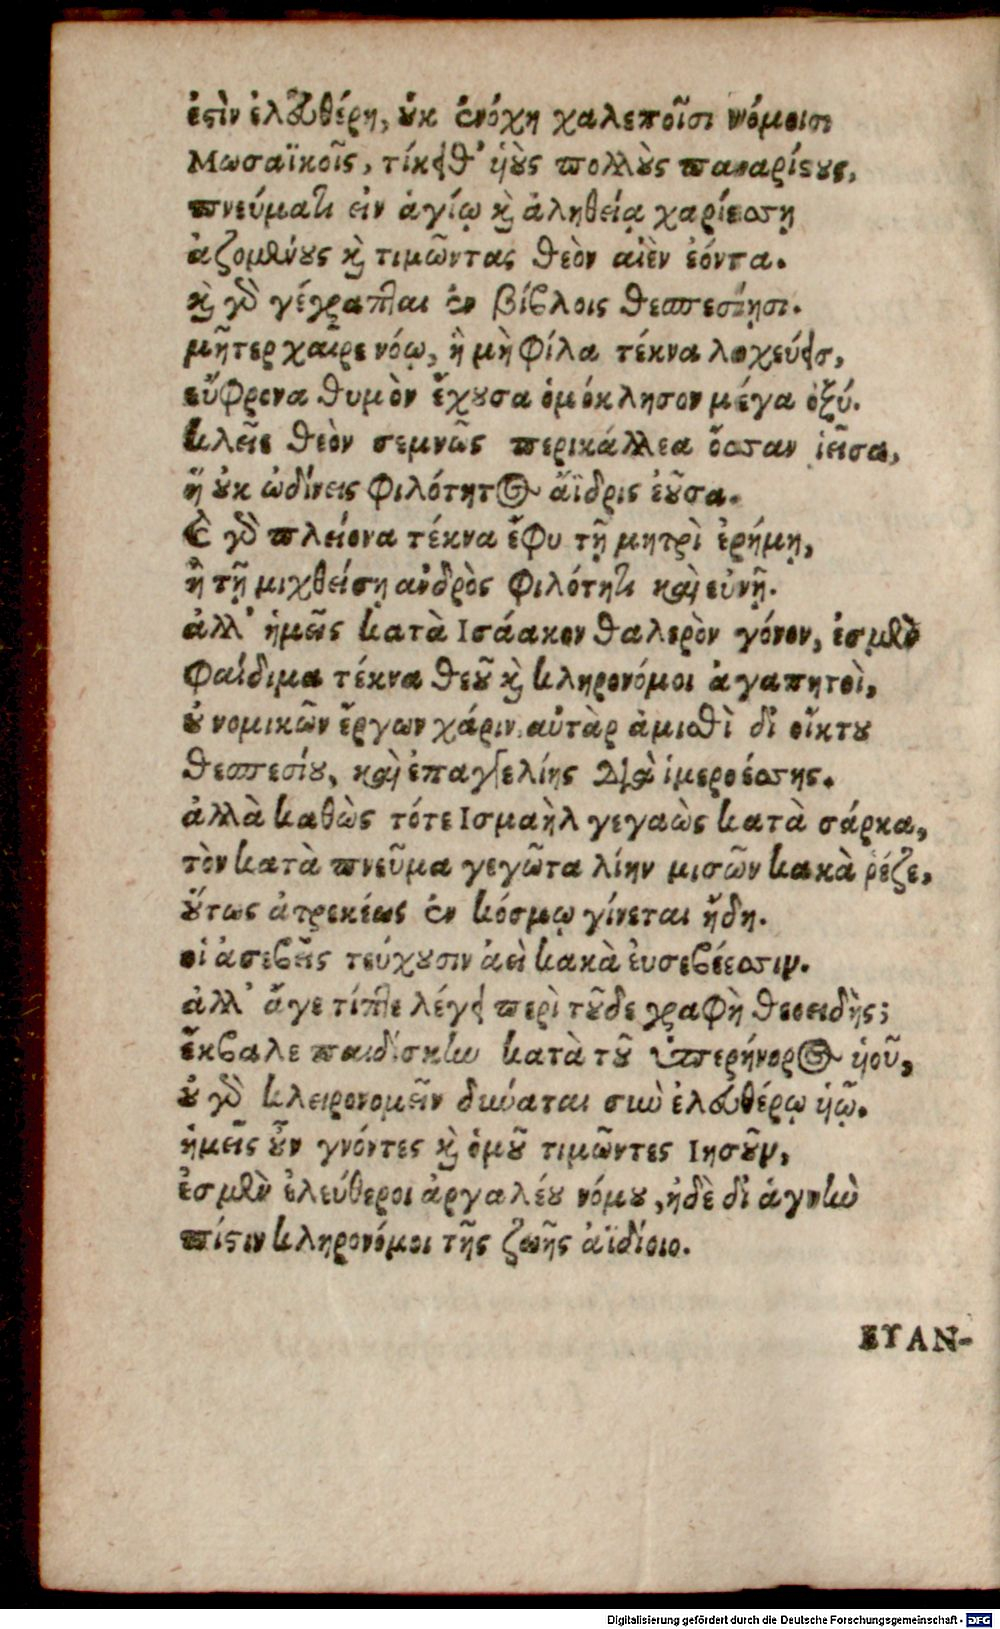 ἐϛὶν ἐλευθέρη, ȣ̓κ ἐνόχη χαλεποῖσι νόμοισι
Μωσαϊκοῖς, τίκτει θ' ὑȣ̀ς πολλȣ̀ς
πνεύματι εἰν ἁγίῳ καὶ ἀληθείᾳ χαριέσσῃ
ἁζομένȣς καὶ τιμῶντας θεὸν αἰὲν ἐόντα.
καὶ γὰρ γέγραπται ἐν βίβλοις θεσπεσίῃσι.
μῆτερ χαῖρε νόῳ, ἣ μὴ φίλα τέκνα λοχεύεις,
εὔφρονα θυμὸν ἔχȣσα ὁμόκλησον μέγα ὀξύ.
κλεῖε θεὸν σεμνῶς περικάλλεα ὄσσαν ἱεῖσα,
ἣ ȣ̓κ ὠδίνεις φιλότητος ἄϊδρις ἐȣ͂σα.
Ὲ γὰρ πλείονα τέκνα ἔφυ τῇ μητρὶ ἐρήμῃ,
ἢ τῇ μιχθείσῃ ἀνδρὸς φιλότητι καὶ εὐνῇ.
ἀλλ' ἡμεῖς κατὰ Ισάακον θαλερὸν γόνον, ἐσμὲν
φαίδιμα τέκνα θεȣ͂ καὶ κληρονόμοι ἀγαπητοὶ,
ȣ̓ νομικῶν ἔργων χάριν. αὐτὰρ ἀμισθὶ δι' οἴκτȣ
θεσπεσίȣ, καὶ ἐπαγγελίης διὰ ἱμεροέσσης.
ἀλλὰ καθὼς τότε Ισμαὴλ γεγαὼς κατὰ σάρκα,
τὸν κατὰ πνεῦμα γεγῶτα λίην μισῶν κακὰ ῥέζε,
ȣ̔́τως ἀτρεκέως ἐν κόσμῳ γίνεται ἤδη.
οἱ ἀσεβεῖς τεύχȣσιν ἀεὶ κακὰ εὐσεβέεσσιν.
ἀλλ' ἄγε τίπτε λέγει περὶ τȣ͂δε γραφὴ θεοειδής;
ἔκβαλε παιδίσκην κατὰ τȣ͂ ὑπερήνορος ὑοῦ,
ȣ̓ γὰρ κλειρονομεῖν δύναται σὺν ἐλευθέρῳ ὑῷ.
ἡμεῖς ȣ̓͂ν γνόντες καὶ ὁμȣ͂ τιμῶντες Ιησȣ͂ν,
ἐσμὲν ἐλεύθεροι ἀργαλέȣ νόμȣ, ἠδὲ δι' ἁγνὴν
πίϛιν κληρονόμοι τῆς ζωῆς ἀϊδίοιο.
ΕΥΑΝ-
Digitalisierung gefördert durch die Deutsche Forschungsgemeinschaft - DFG